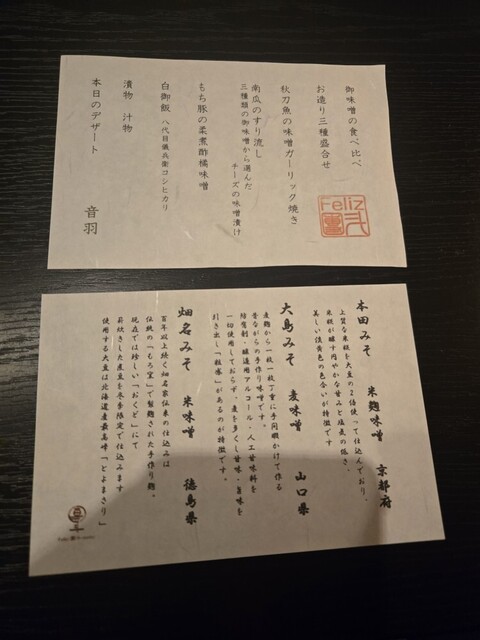 御味噌の食べ比べ
お造り三種盛合せ
秋刀魚の味噌ガーリック焼き
南瓜のすり流し
三種類の御味噌から選んだ
チーズの味噌漬け
もち豚の柔煮酢橘味噌
白御飯 八代目儀兵衛コシヒカリ
漬物 汁物
本日のデザート
音羽
Feliz
本田みそ 米麹味噌 京都府
上質な米糀を大豆の2倍使って仕込んでおり、
米糀が醸す円やかな甘みと塩辛の低さ、
美しい淡黄色の色合いが特徴です
大島みそ 麦味噌 山口県
麦麹から一枚一枚丁寧に手間暇かけて作る
昔ながらの手作り味噌です。
防腐剤・醸造用アルコール・人工甘味料を
一切使用しておらず、麦を多くし甘味・旨味を
引き出し「粒感」があるのが特徴です。
畑名みそ 米味噌 徳島県
百年以上続く畑名家伝来の仕込みは
伝統の「もろ室」で製麹された手作り麹。
現在では珍しい「おくど」にて
薪炊きした大豆を冬季限定で仕込みます
使用する大豆は北海道産最高峰「とよまさり」